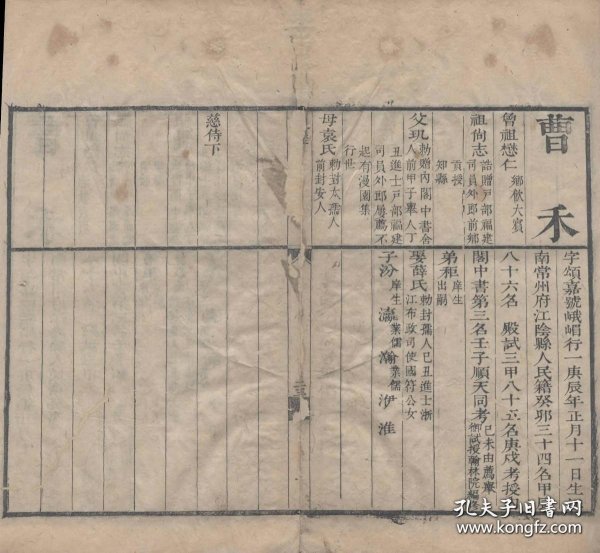 曹禾
曾祖懋仁 鄉飲大賓
祖尚志 誥贈戶部福建
司員外郎前鄉
貢授
知縣
父璣 勅贈內閣中書舍
人前甲子舉人丁
丑進士戶部福建
司員外郎屢薦不
起有漫園集
行世
母袁氏 勅封太孺人
前封安人
慈侍下
字頌嘉號峨嵋行一庚辰年正月十一日生
南常州府江陰縣人民籍癸卯三十四名甲
八十六名 殿試三甲八十五名庚戌考授
閣中書第三名壬子順天同考 己未由薦
御試授翰林院編
弟秬 庠生
出嗣
娶薛氏 勅封孺人己丑進士浙
江布政司使國符公女
子汾 庠生 瀛 業儒 瀚 業儒 伊 淮
孔夫子旧书网
www.kongfz.com